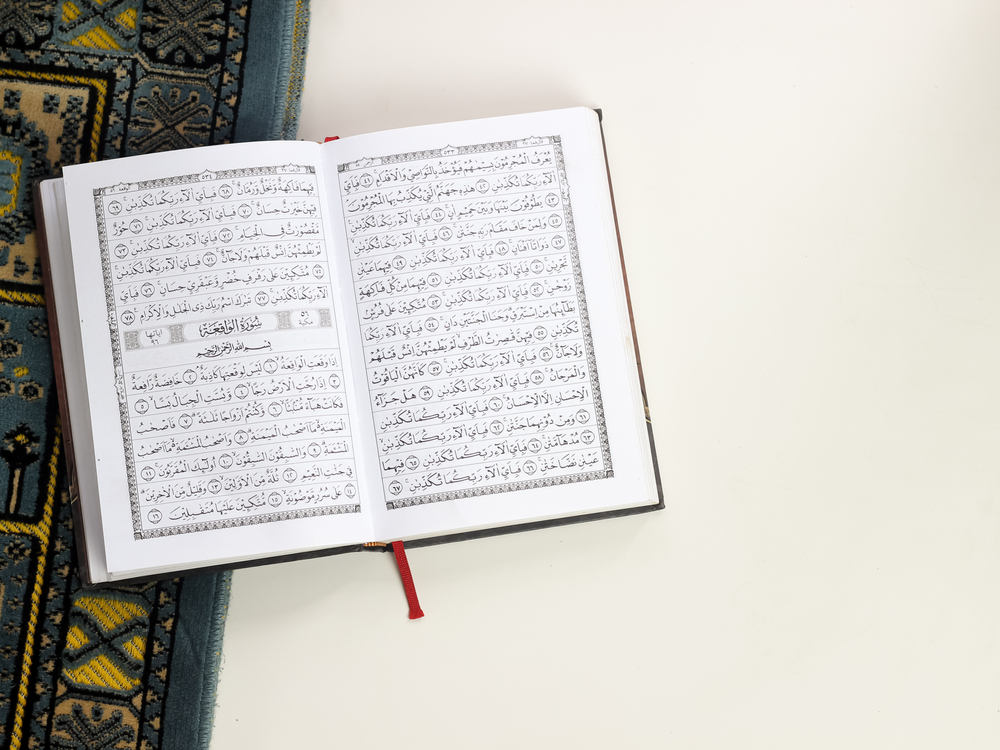 ٥٣٣
يُعْرَفُ الْمُجْرِمُونَ بِسِيمَٰهُمْ فَيُؤْخَذُ بِالنَّوَٰصِي وَالْأَقْدَامِ ٤١ فَبِأَيِّ
ءَالَآءِ رَبِّكُمَا تُكَذِّبَانِ ٤٢ هَٰذِهِ جَهَنَّمُ الَّتِي يُكَذِّبُ بِهَا الْمُجْرِمُونَ
٤٣ يَطُوفُونَ بَيْنَهَا وَبَيْنَ حَمِيمٍ ءَانٍ ٤٤ فَبِأَيِّ ءَالَآءِ رَبِّكُمَا تُكَذِّبَانِ
٤٥ وَلِمَنْ خَافَ مَقَامَ رَبِّهِ جَنَّتَانِ ٤٦ فَبِأَيِّ ءَالَآءِ رَبِّكُمَا تُكَذِّبَانِ
٤٧ ذَوَاتَآ أَفْنَانٍ ٤٨ فَبِأَيِّ ءَالَآءِ رَبِّكُمَا تُكَذِّبَانِ ٤٩ فِيهِمَا عَيْنَانِ
تَجْرِيَانِ ٥٠ فَبِأَيِّ ءَالَآءِ رَبِّكُمَا تُكَذِّبَانِ ٥١ فِيهِمَا مِن كُلِّ فَٰكِهَةٍ
زَوْجَانِ ٥٢ فَبِأَيِّ ءَالَآءِ رَبِّكُمَا تُكَذِّبَانِ ٥٣ مُتَّكِـِٔينَ عَلَىٰ فُرُشٍ
بَطَآئِنُهَا مِنْ إِسْتَبْرَقٍ وَجَنَى الْجَنَّتَيْنِ دَانٍ ٥٤ فَبِأَيِّ ءَالَآءِ رَبِّكُمَا
تُكَذِّبَانِ ٥٥ فِيهِنَّ قَٰصِرَٰتُ الطَّرْفِ لَمْ يَطْمِثْهُنَّ إِنسٌ قَبْلَهُمْ
وَلَا جَآنٌّ ٥٦ فَبِأَيِّ ءَالَآءِ رَبِّكُمَا تُكَذِّبَانِ ٥٧ كَأَنَّهُنَّ الْيَاقُوتُ
وَالْمَرْجَانُ ٥٨ فَبِأَيِّ ءَالَآءِ رَبِّكُمَا تُكَذِّبَانِ ٥٩ هَلْ جَزَآءُ
الْإِحْسَٰنِ إِلَّا الْإِحْسَٰنُ ٦٠ فَبِأَيِّ ءَالَآءِ رَبِّكُمَا تُكَذِّبَانِ
٦١ وَمِن دُونِهِمَا جَنَّتَانِ ٦٢ فَبِأَيِّ ءَالَآءِ رَبِّكُمَا تُكَذِّبَانِ
٦٣ مُدْهَآمَّتَانِ ٦٤ فَبِأَيِّ ءَالَآءِ رَبِّكُمَا تُكَذِّبَانِ ٦٥ فِيهِمَا
عَيْنَانِ نَضَّاخَتَانِ ٦٦ فَبِأَيِّ ءَالَآءِ رَبِّكُمَا تُكَذِّبَانِ ٦٧
فِيهِمَا فَٰكِهَةٌ وَنَخْلٌ وَرُمَّانٌ ٦٨ فَبِأَيِّ ءَالَآءِ رَبِّكُمَا تُكَذِّبَانِ ٦٩
فِيهِنَّ خَيْرَٰتٌ حِسَانٌ ٧٠ فَبِأَيِّ ءَالَآءِ رَبِّكُمَا تُكَذِّبَانِ ٧١ حُورٌ
مَّقْصُورَٰتٌ فِي الْخِيَامِ ٧٢ فَبِأَيِّ ءَالَآءِ رَبِّكُمَا تُكَذِّبَانِ ٧٣
لَمْ يَطْمِثْهُنَّ إِنسٌ قَبْلَهُمْ وَلَا جَآنٌّ ٧٤ فَبِأَيِّ ءَالَآءِ رَبِّكُمَا تُكَذِّبَانِ
٧٥ مُتَّكِـِٔينَ عَلَىٰ رَفْرَفٍ خُضْرٍ وَعَبْقَرِيٍّ حِسَانٍ ٧٦ فَبِأَيِّ
ءَالَآءِ رَبِّكُمَا تُكَذِّبَانِ ٧٧ تَبَٰرَكَ اسْمُ رَبِّكَ ذِي الْجَلَٰلِ وَالْإِكْرَامِ ٧٨
٥٦ مكية سُورَةُ الْوَاقِعَةِ آياتها ٩٦
بِسْمِ اللَّهِ الرَّحْمَٰنِ الرَّحِيمِ
إِذَا وَقَعَتِ الْوَاقِعَةُ ١ لَيْسَ لِوَقْعَتِهَا كَاذِبَةٌ ٢ خَافِضَةٌ رَّافِعَةٌ
٣ إِذَا رُجَّتِ الْأَرْضُ رَجًّا ٤ وَبُسَّتِ الْجِبَالُ بَسًّا ٥
فَكَانَتْ هَبَآءً مُّنۢبَثًّا ٦ وَكُنتُمْ أَزْوَٰجًا ثَلَٰثَةً ٧ فَأَصْحَٰبُ
الْمَيْمَنَةِ مَآ أَصْحَٰبُ الْمَيْمَنَةِ ٨ وَأَصْحَٰبُ الْمَشْـَٔمَةِ مَآ أَصْحَٰبُ
الْمَشْـَٔمَةِ ٩ وَالسَّٰبِقُونَ السَّٰبِقُونَ ١٠ أُولَٰٓئِكَ الْمُقَرَّبُونَ ١١
فِي جَنَّٰتِ النَّعِيمِ ١٢ ثُلَّةٌ مِّنَ الْأَوَّلِينَ ١٣ وَقَلِيلٌ مِّنَ الْءَاخِرِينَ
١٤ عَلَىٰ سُرُرٍ مَّوْضُونَةٍ ١٥ مُّتَّكِـِٔينَ عَلَيْهَا مُتَقَٰبِلِينَ ١٦